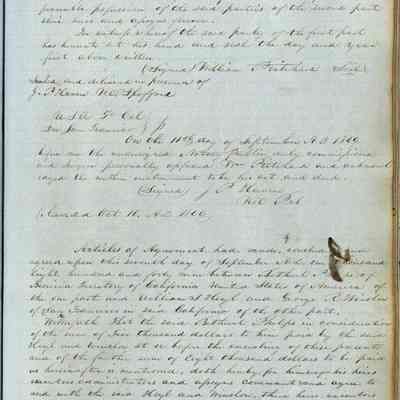 peaceable possession of the said parties of the second part
their heirs and assigns forever.
In witness whereof the said party of the first part
has hereunto set his hand and seal the day and year
first above written
(Signed) William Pritchard Seal
Sealed and delivered in presence of
J. P. Haven
U.S.A. Tr. Cal
San Francisco
On the 11th day of September A.D. 1849
before me the undersigned Notary Public duly commissioned
and sworn personally appeared Wm Pritchard and acknowl
edged the within instrument to be his act and deed.
(Signed) J. P. Haven
Not. Pub
Recorded Oct. 10
Articles of Agreement had, made, concluded and
agreed upon this seventh day of September A.D. one thousand
eight hundred and forty nine between Bethuel Phelps of
Benicia Territory of California United States of America of
the one part and William S. Hoyt and George R. Winslow
of San Francisco in said California of the other part.
Witnesseth that the said Bethuel Phelps in consideration
of the sum of two thousand dollars to him paid by the said
Hoyt and Winslow at or before the execution of these presents
and of the further sum of Eight thousand dollars to be paid
as hereinafter is mentioned, doth hereby for himself his heirs
executors administrators and assigns covenant and agree to
and with the said Hoyt and Winslow, their heirs, executors